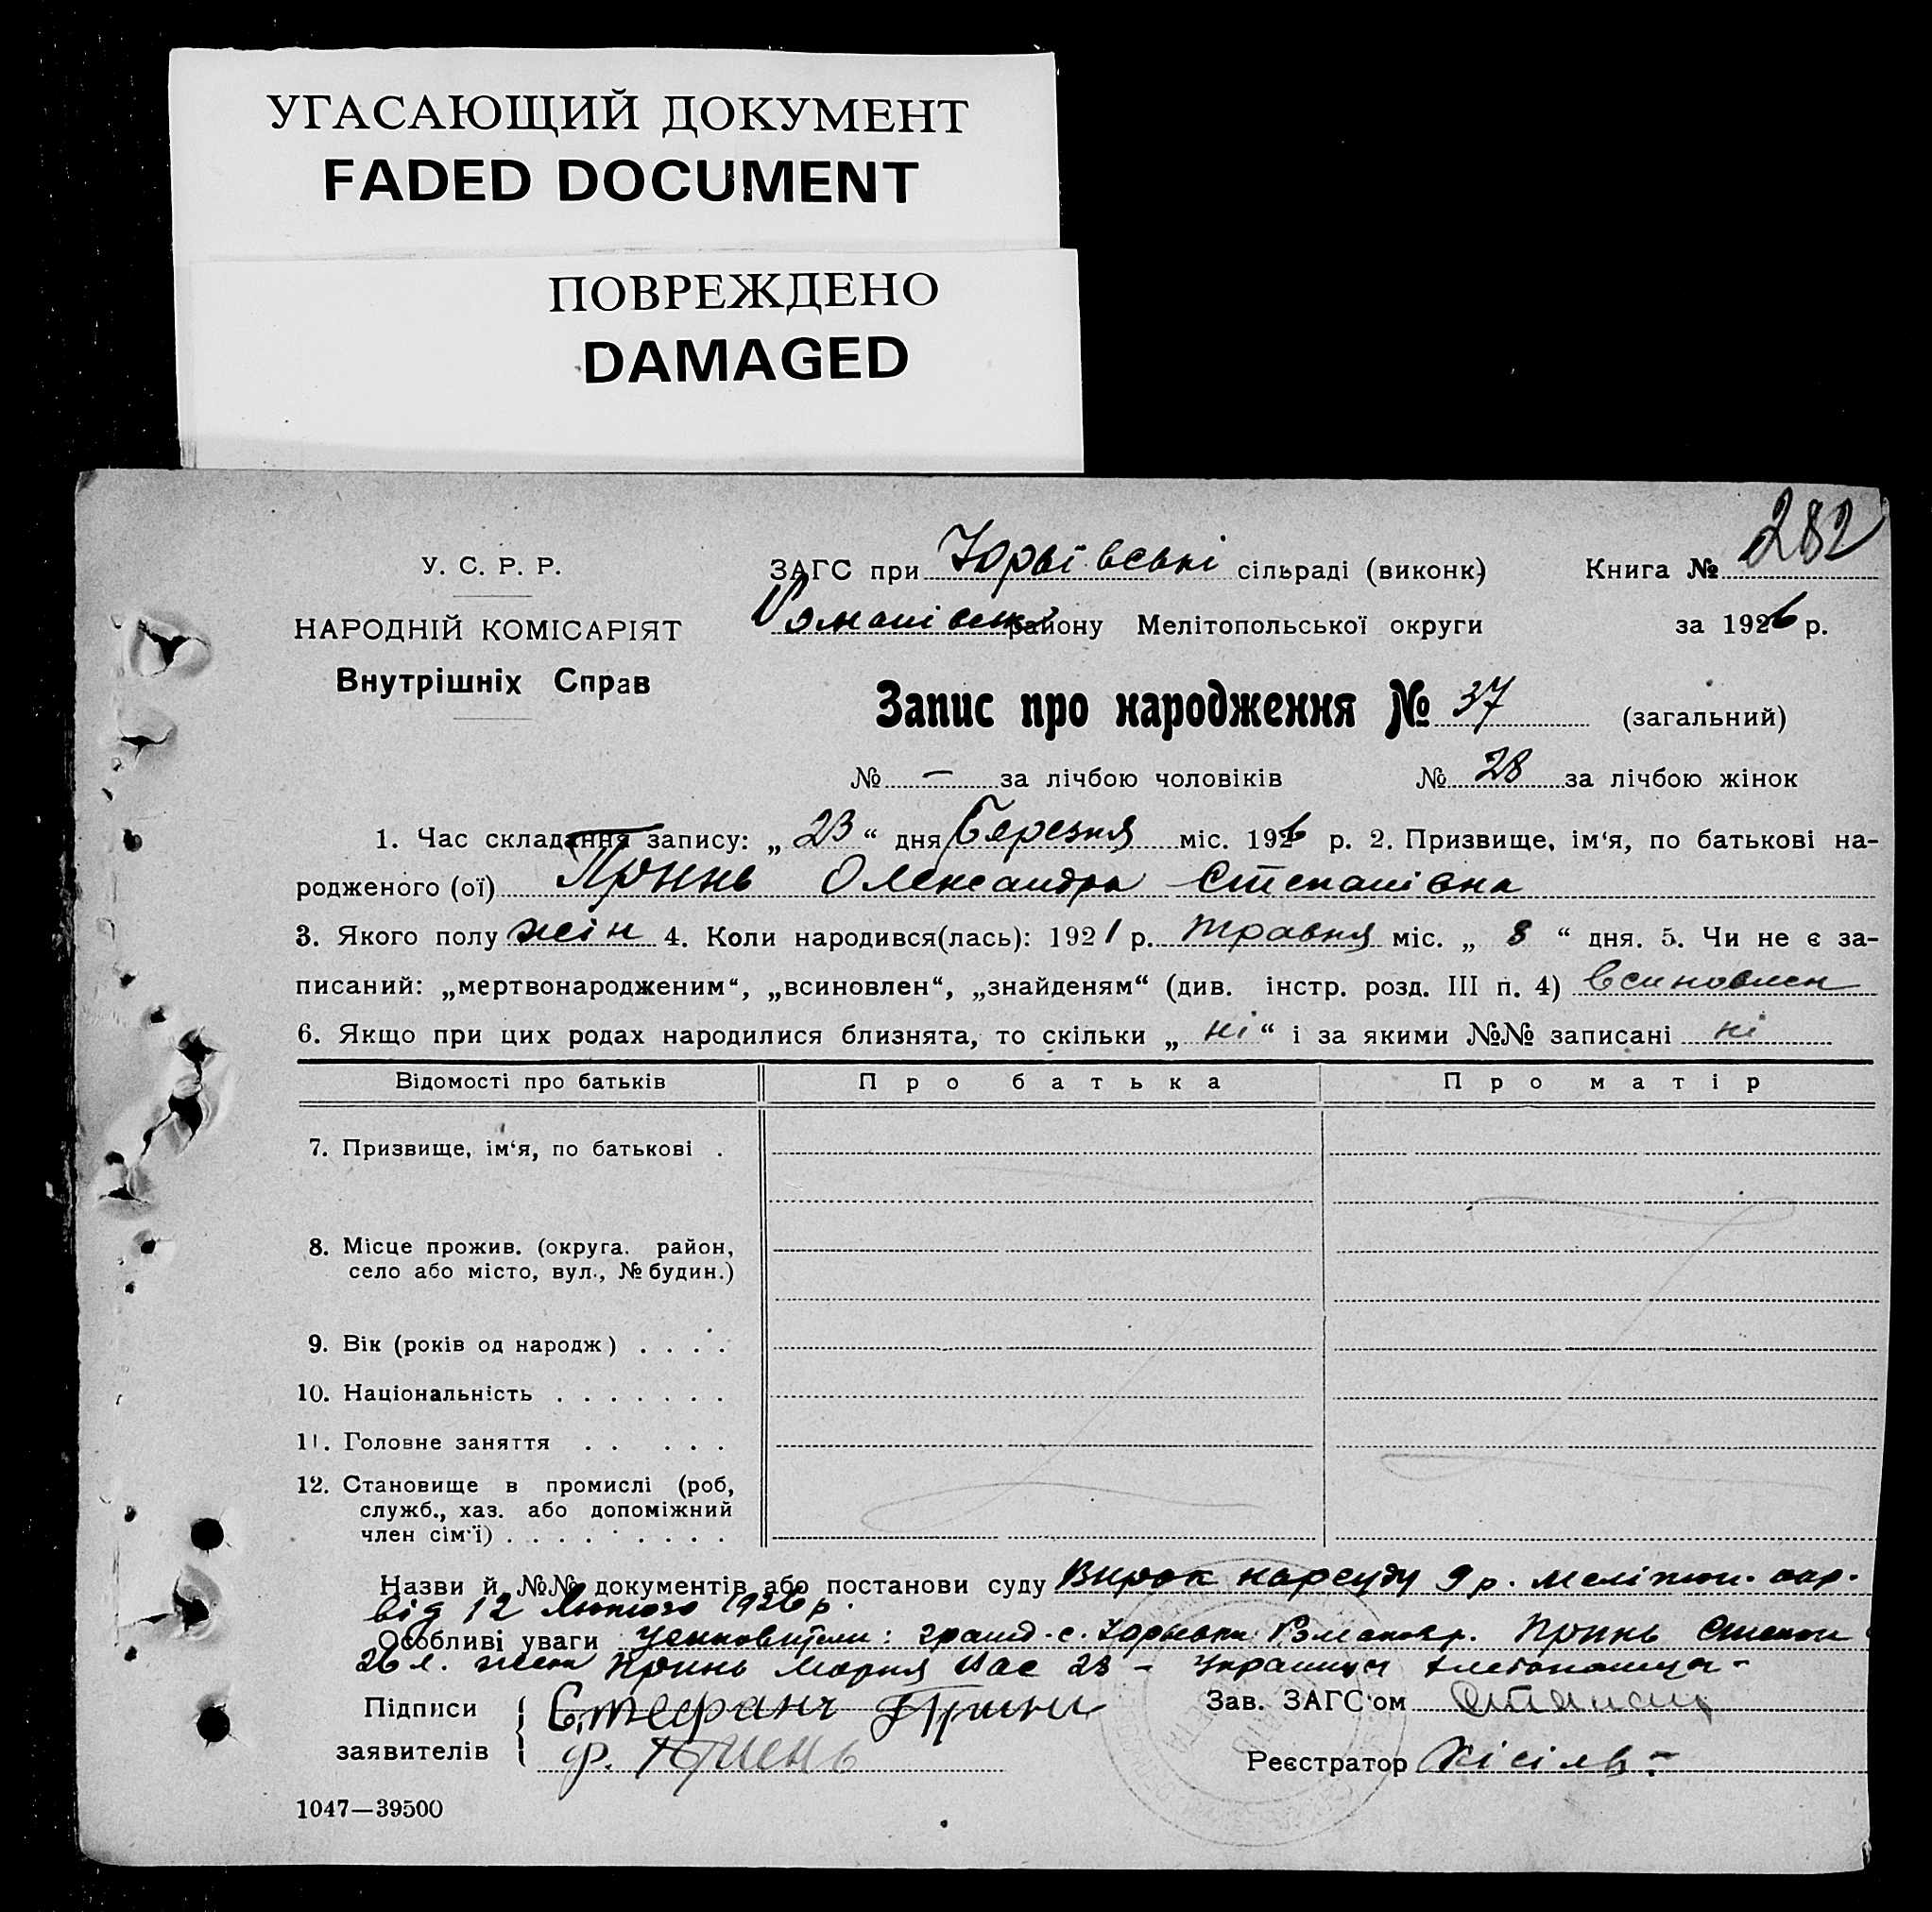 УГАСАЮЩИЙ ДОКУМЕНТ
FADED DOCUMENT
ПОВРЕЖДЕНО
DAMAGED
282
У. С. Р. Р.
НАРОДНІЙ КОМІСАРІЯТ
Внутрішніх Справ
ЗАГС при Юрьївські сільраді (виконк) Книга №
району Мелітопольської округи за 1926 р.
Запис про народження № 37 (загальний)
№ — за лічбою чоловіків № 28 за лічбою жінок
1. Час складання запису: „ 23 “ дня Березня міс. 1926 р. 2. Призвище, ім‘я, по батькові на-
родженого (ої) Принь Олександра Степанівна
3. Якого полу жін 4. Коли народився(лась): 1921 р. травня міс. „ 8 “ дня. 5. Чи не є за-
писаний: „мертвонародженим“, „всиновлен“, „знайденям“ (див. інстр. розд. III п. 4) всиновлен
6. Якщо при цих родах народилися близнята, то скільки „ ні “ і за якими №№ записані ні
Відомості про батьків Про батька Про матір
7. Призвище, ім‘я, по батькові .
8. Місце прожив. (округа. район,
село або місто, вул., № будин.)
9. Вік (років од народж) . . . .
10. Національність . . . . . . .
11. Головне заняття . . . . .
12. Становище в промислі (роб,
служб., хаз. або допоміжний
член сім‘ї) . . . . . . . .
Назви й №№ документів або постанови суду Вирок нарсуду 9 р. Меліт окр.
від 12 Лютого 1926 р.
Особливі уваги усиновители: гражд. с. Юрьевки Принь Степан
26 л. жена Принь Мария 23 –
Підписи Стефанъ Принь Зав. ЗАГС‘ом
заявителів Принь Реєстратор Кісіль
1047—39500